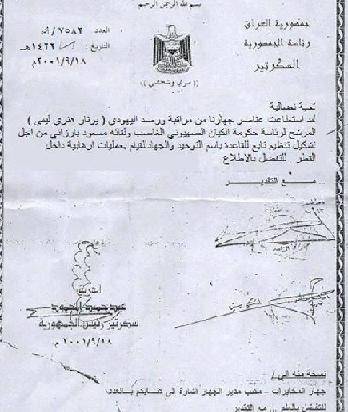 بسم الله الرحمن الرحيم
جمهورية العراق
رئاسة الجمهورية
السكرتير
العدد ٧٥٨٢
التاريخ / ١٤٢٢هـ
٢٠٠١/٩/١٨م
(( سري وشخصي ))
تحية نضالية
لقد استطاعت عناصر جهازنا من مراقبة ورصد اليهودي ( برنار هنري ليفي )
المرشح لرئاسة حكومة الكيان الصهيوني الغاصب ولقائه مسعود بارزاني من اجل
تشكيل تنظيم تابع للقاعدة باسم التوحيد والجهاد للقيام بعمليات ارهابية داخل
القطر للتفضل بالاطلاع
مع التقدير
عبد حميد
سكرتير رئيس الجمهورية
٢٠٠١/٩/١٨ م
نسخة منه الى /
جهاز المخابرات - مكتب مدير الجهاز